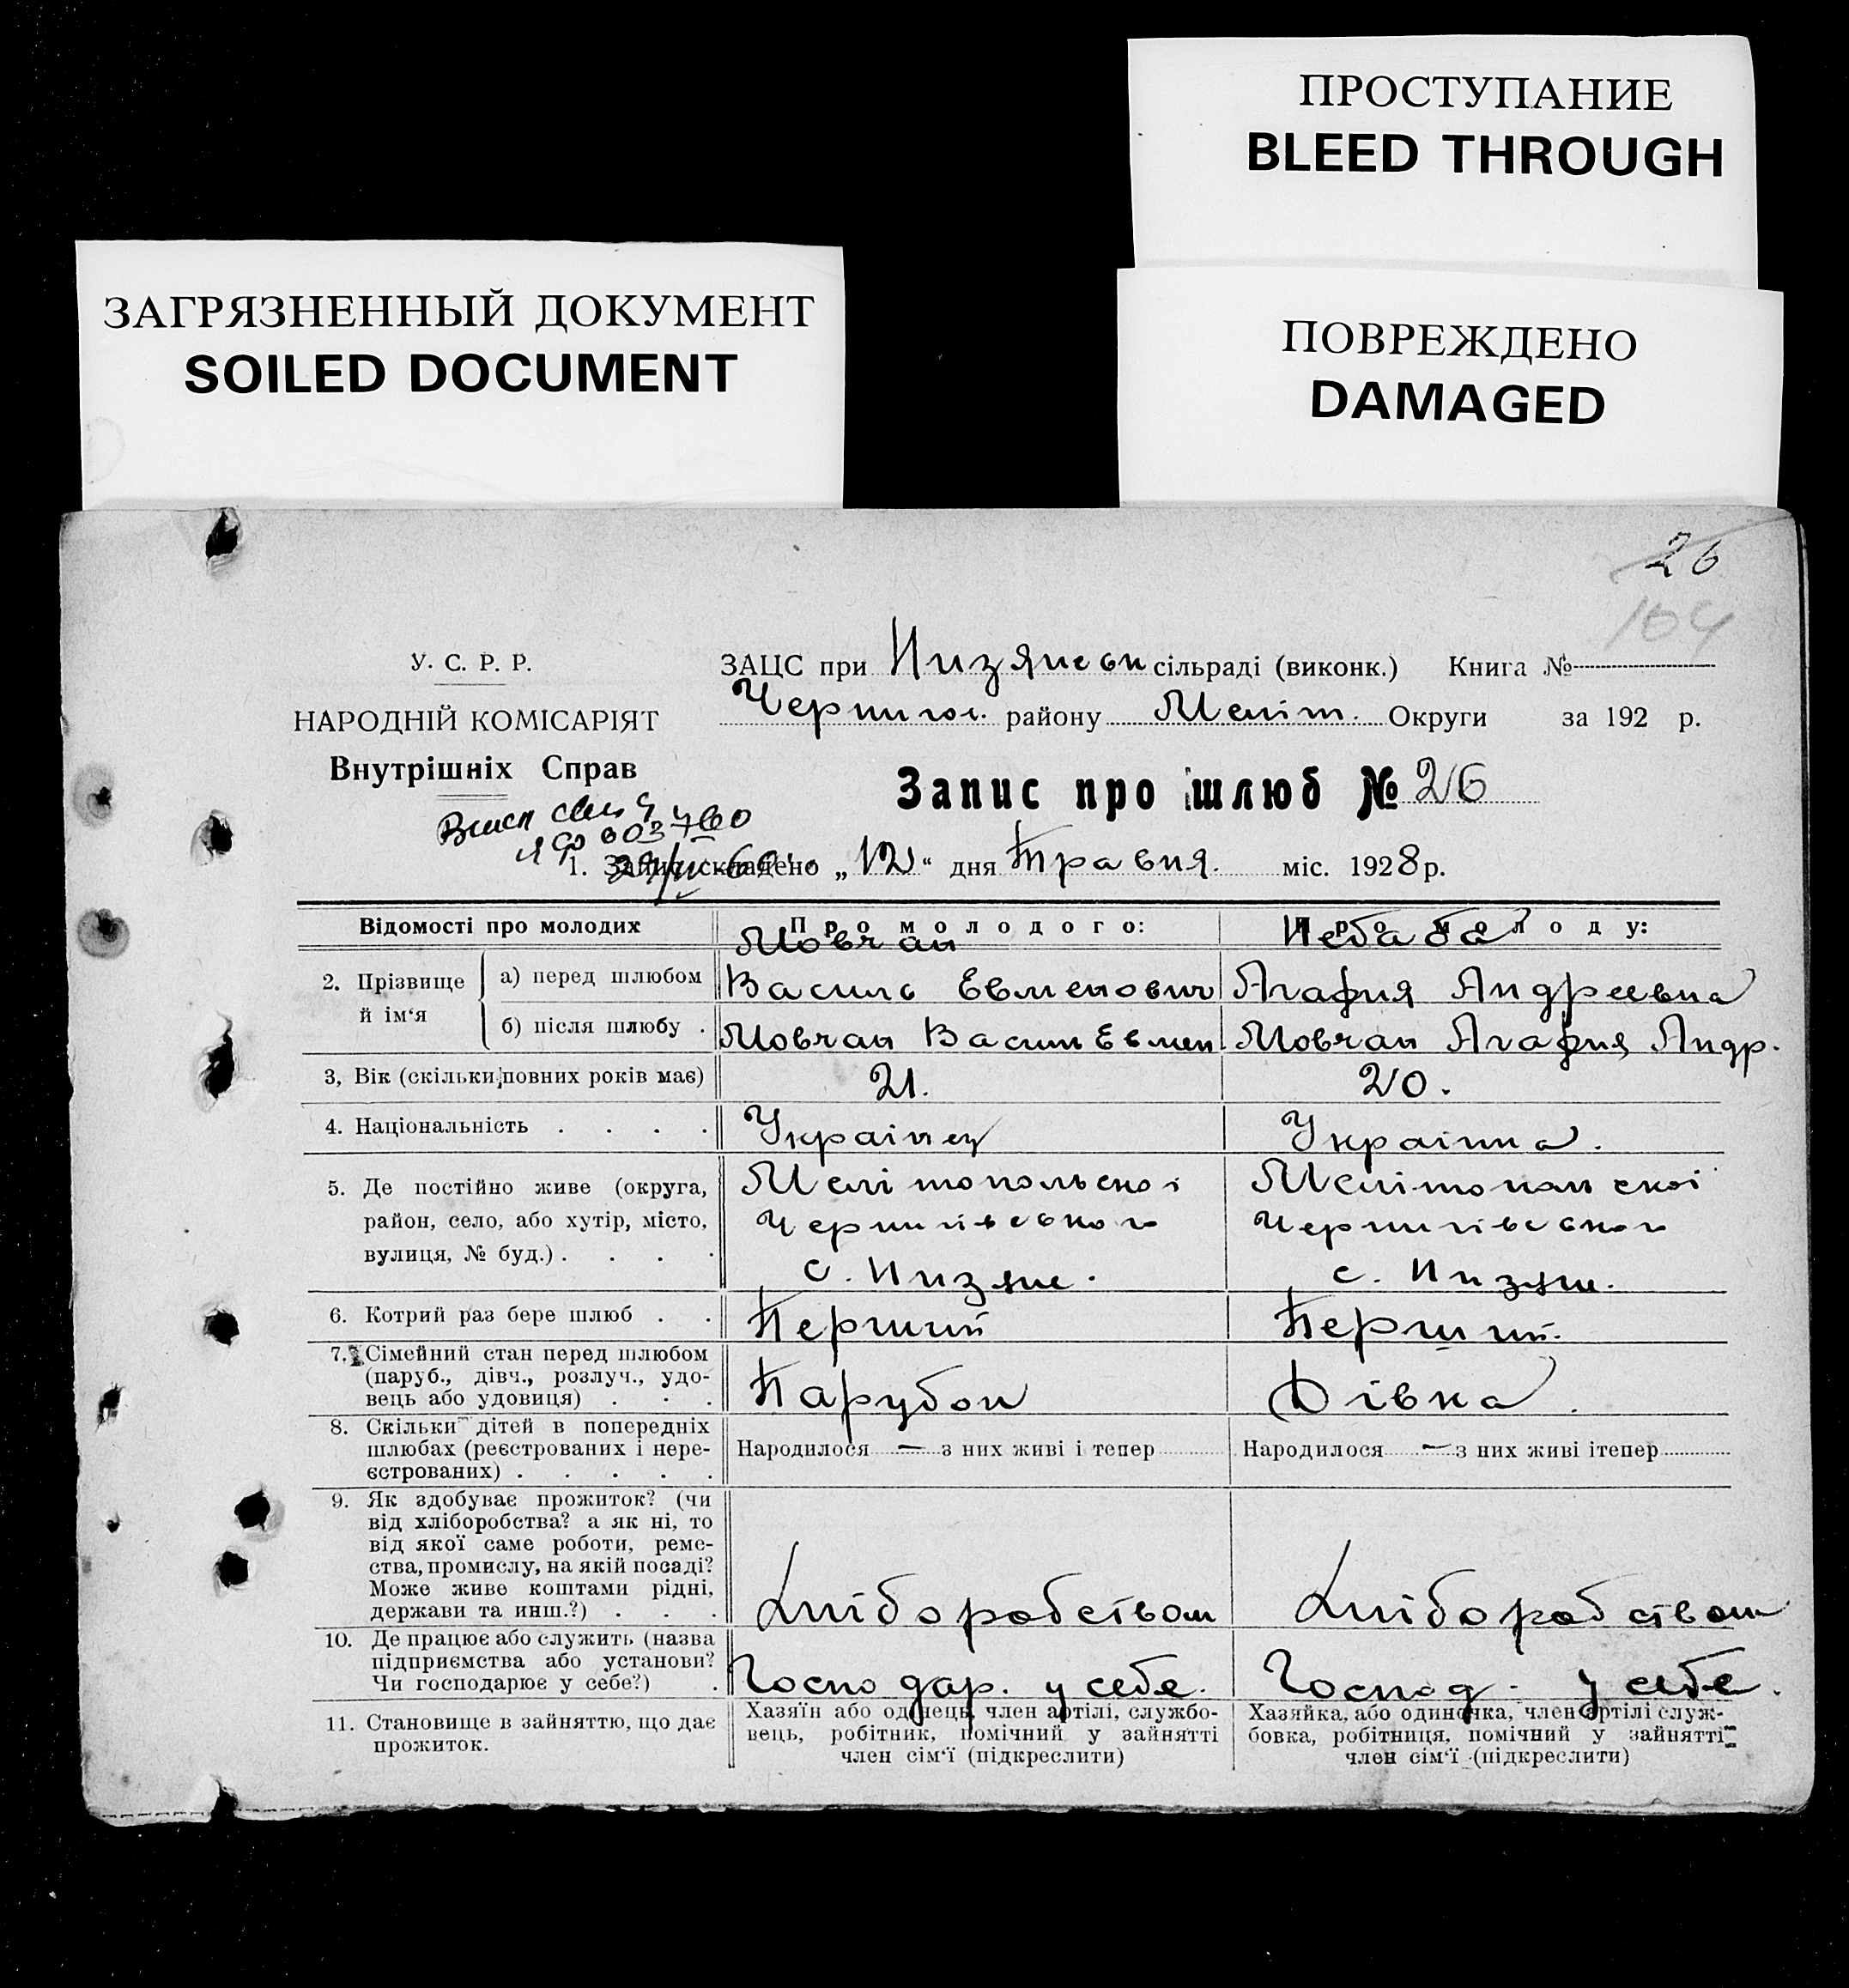 ПРОСТУПАНИЕ
BLEED THROUGH
ЗАГРЯЗНЕННЫЙ ДОКУМЕНТ
SOILED DOCUMENT
ПОВРЕЖДЕНО
DAMAGED
26
104
У. С. Р. Р.
НАРОДНІЙ КОМІСАРІЯТ
Внутрішніх Справ
ЗАЦС при Низянськ сільраді (виконк.) Книга №
Черниг. району Меліт. Округи за 192 р.
Запис про шлюб № 26
003760
1. Записа складено „12“ дня Травня. міс. 1928 р.
Відомості про молодих
Про молодого:
Про молоду:
2. Прізвище й ім‘я
а) перед шлюбом
Мовчан
Василь Евменович
Небаба
Агафия Андреевна
б) після шлюбу .
Мовчан Васил Евмен
Мовчан Агафия Андр.
3, Вік (скільки повних років має)
21.
20.
4. Національність . . . .
Українец
Украінка.
5. Де постійно живе (округа,
район, село, або хутір, місто,
вулиця, № буд.) . . . .
Мелітопольскоі
Чернигівського
с. Низяне.
Мелітопольскоі
Чернигівського
с. Низяне.
6. Котрий раз бере шлюб . .
Перший
Перший.
7. Сімейний стан перед шлюбом
(паруб., дівч., розлуч., удо-
вець або удовиця) . . .
Парубок
Дівка.
8. Скільки дітей в попередніх
шлюбах (реєстрованих і нере-
єстрованих) . . . . .
Народилося — з них живі і тепер
Народилося — з них живі ітепер
9. Як здобуває прожиток? (чи
від хліборобства? а як ні, то
від якої саме роботи, реме-
ства, промислу, на якій посаді?
Може живе коштами рідні,
держави та инш.?) . . .
Хліборобством
Хліборобством
10. Де працює або служить (назва
підприємства або установи?
Чи господарює у себе?) .
Господар. у себе.
Господ. у себе.
11. Становище в зайняттю, що дає
прожиток.
Хазяїн або одинець, член артілі, службо-
вець, робітник, помічний у зайнятті
член сім‘ї (підкреслити)
Хазяйка, або одиночка, член артілі служ-
бовка, робітниця, помічний у зайнятті
член сім‘ї (підкреслити)